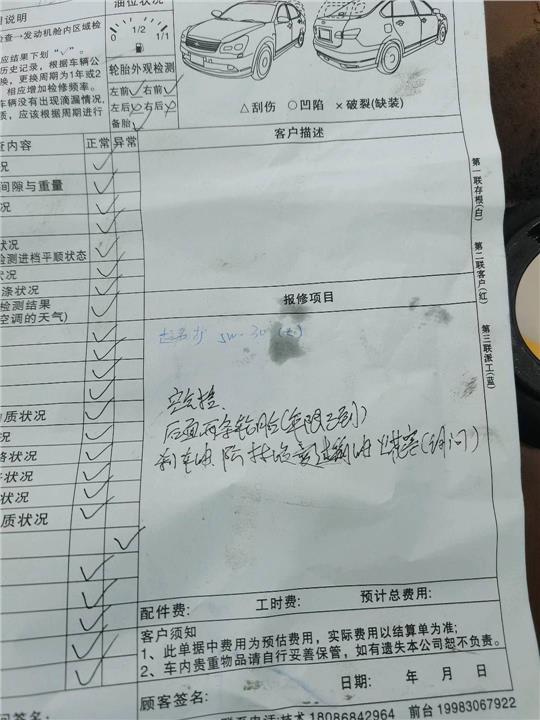 油位状况
说明
检查→发动机舱内区域检
应结果下划"√"。
历史记录，根据车辆公
换，更换周期为1年或2
相应增加检修频率。
车辆没有出现滴漏情况，
质，应该根据周期进行
0 1/2 1/1
轮胎外观检测
左前 右前
左后 右后
备胎
△刮伤 ○凹陷 ×破裂(缺装)
查内容 正常 异常
客户描述
况
间隙与重量
况
状况
检测进档平顺状态
状况
涤状况
检测结果
空调的天气)
质状况
况
各状况
状况
状况
质状况
报修项目
5W-30
后面两条轮胎(年限已到)
第一联存根(白)
第二联客户(红)
第三联派工(蓝)
配件费: 工时费: 预计总费用:
客户须知
1、此单据中费用为预估费用，实际费用以结算单为准;
2、车内贵重物品请自行妥善保管，如有遗失本公司恕不负责。
日期: 年 月 日
顾客签名:
签名:
联系电话:技术 18086842964 前台 19983067922